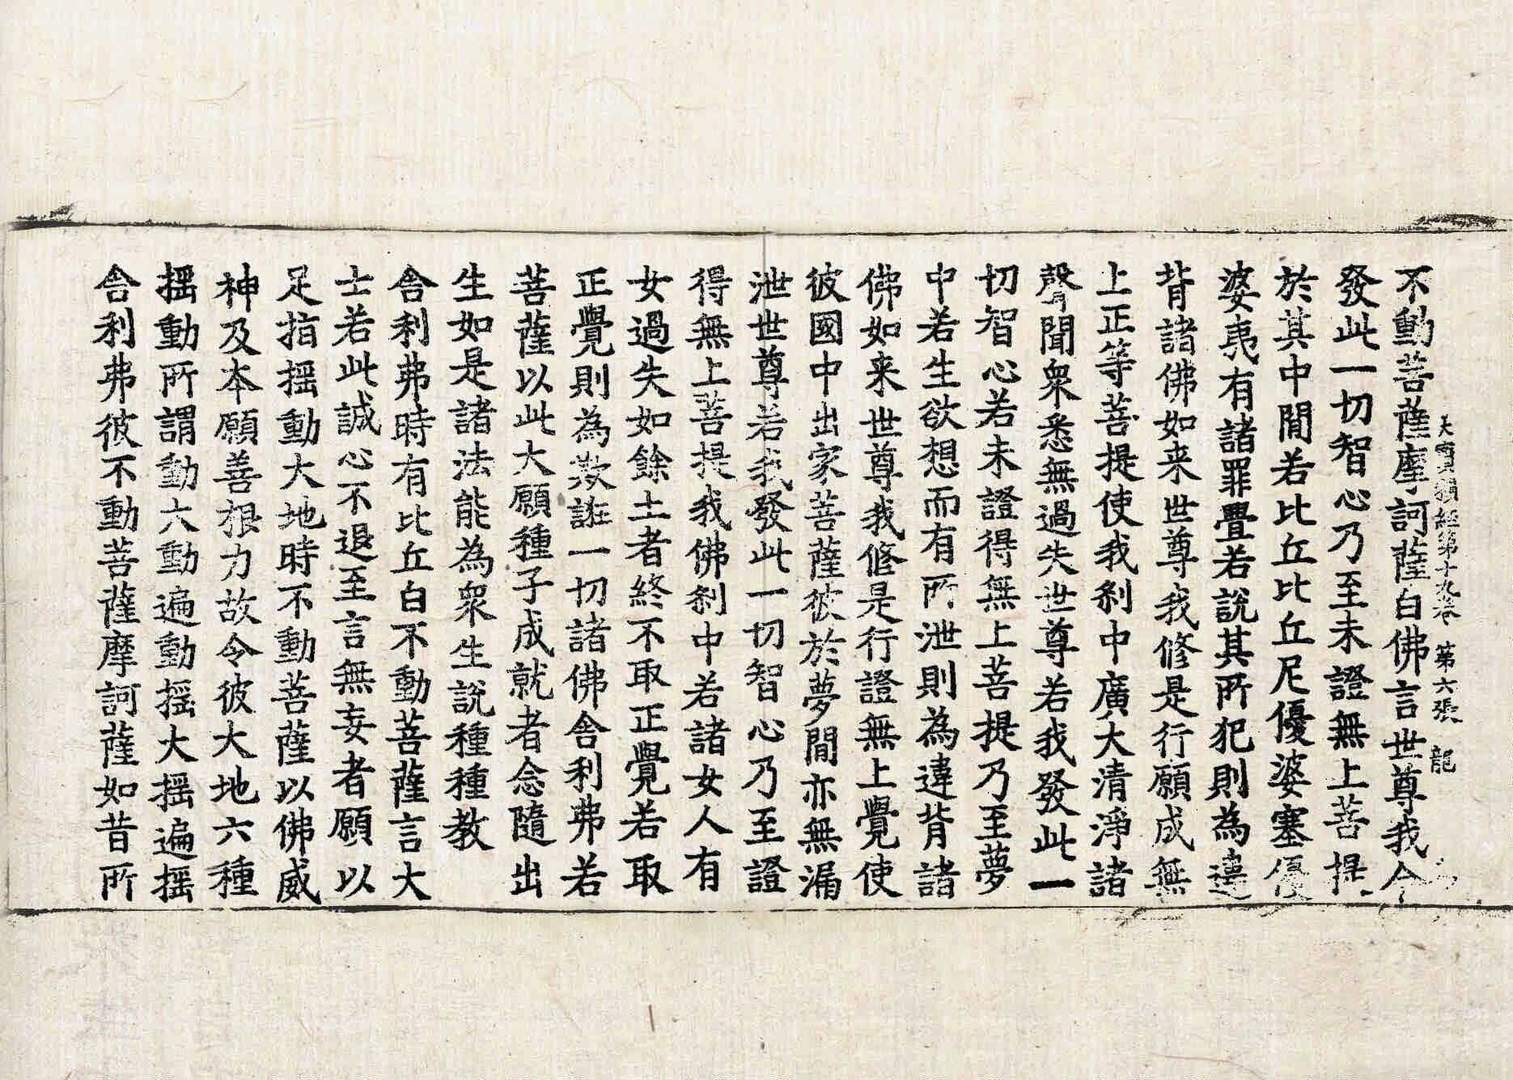 大寶積經第十九卷 第六張 龍
不動菩薩摩訶薩白佛言世尊我今
發此一切智心乃至未證無上菩提
於其中間若比丘比丘尼優婆塞優
婆夷有諸罪畳若說其所犯則為違
背諸佛如来世尊我修是行願成無
上正等菩提使我刹中廣大清淨諸
聲聞衆悉無過失世尊若我發此一
切智心若未證得無上菩提乃至夢
中若生欲想而有所泄則為違背諸
佛如来世尊我修是行證無上覺使
彼國中出家菩薩彼於夢間亦無漏
泄世尊若我發此一切智心乃至證
得無上菩提我佛刹中若諸女人有
女過失如餘土者終不取正覺若取
正覺則為欺誑一切諸佛舍利弗若
菩薩以此大願種子成就者念隨出
生如是諸法能為衆生說種種教
舍利弗時有比丘白不動菩薩言大
士若此誠心不退至言無妄者願以
足指揺動大地時不動菩薩以佛威
神及本願善根力故令彼大地六種
揺動所謂動六動遍動揺大揺遍揺
舍利弗彼不動菩薩摩訶薩如昔所